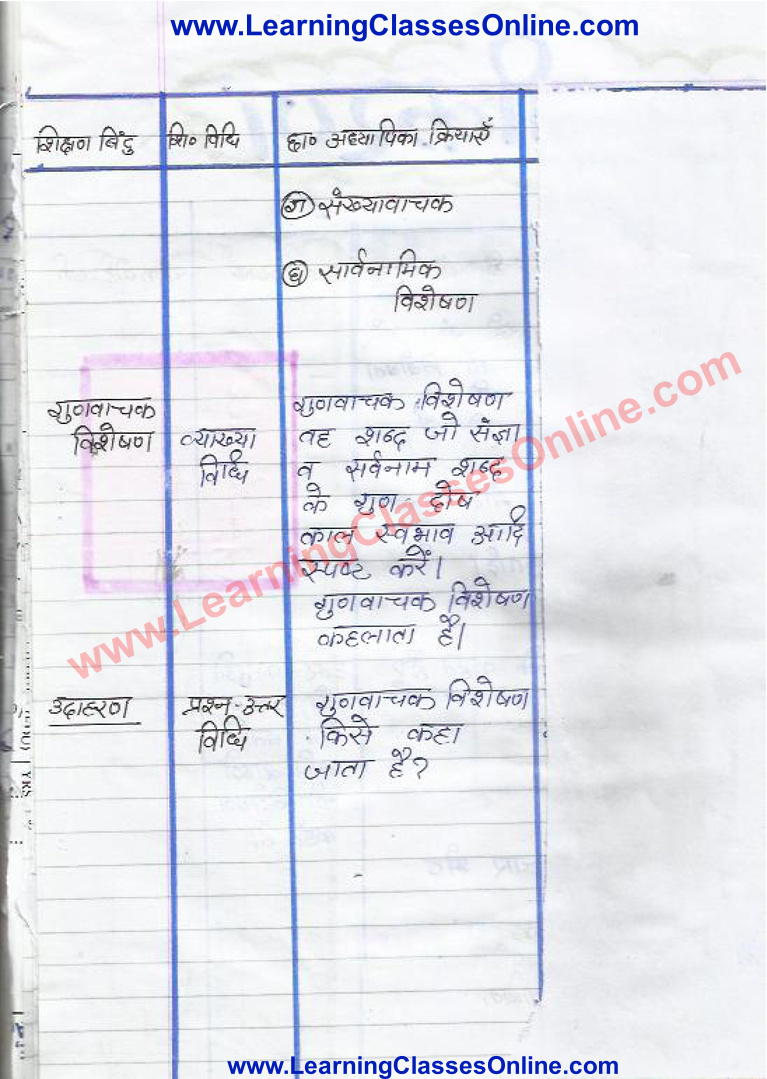 www.LearningClassesOnline.com
शिक्षण बिंदु शि० विधि छा० अध्यापिका क्रियाएँ
ज संख्यावाचक
घ सार्वनामिक
विशेषण
गुणवाचक गुणवाचक विशेषण
विशेषण व्याख्या वह शब्द जो संज्ञा
विधि व सर्वनाम शब्द
के गुण-दोष
काल स्वभाव आदि
स्पष्ट करें।
गुणवाचक विशेषण
कहलाता है।
www.LearningClassesOnline.com
उदाहरण प्रश्न-उत्तर गुणवाचक विशेषण
विधि किसे कहा
जाता है?
www.LearningClassesOnline.com